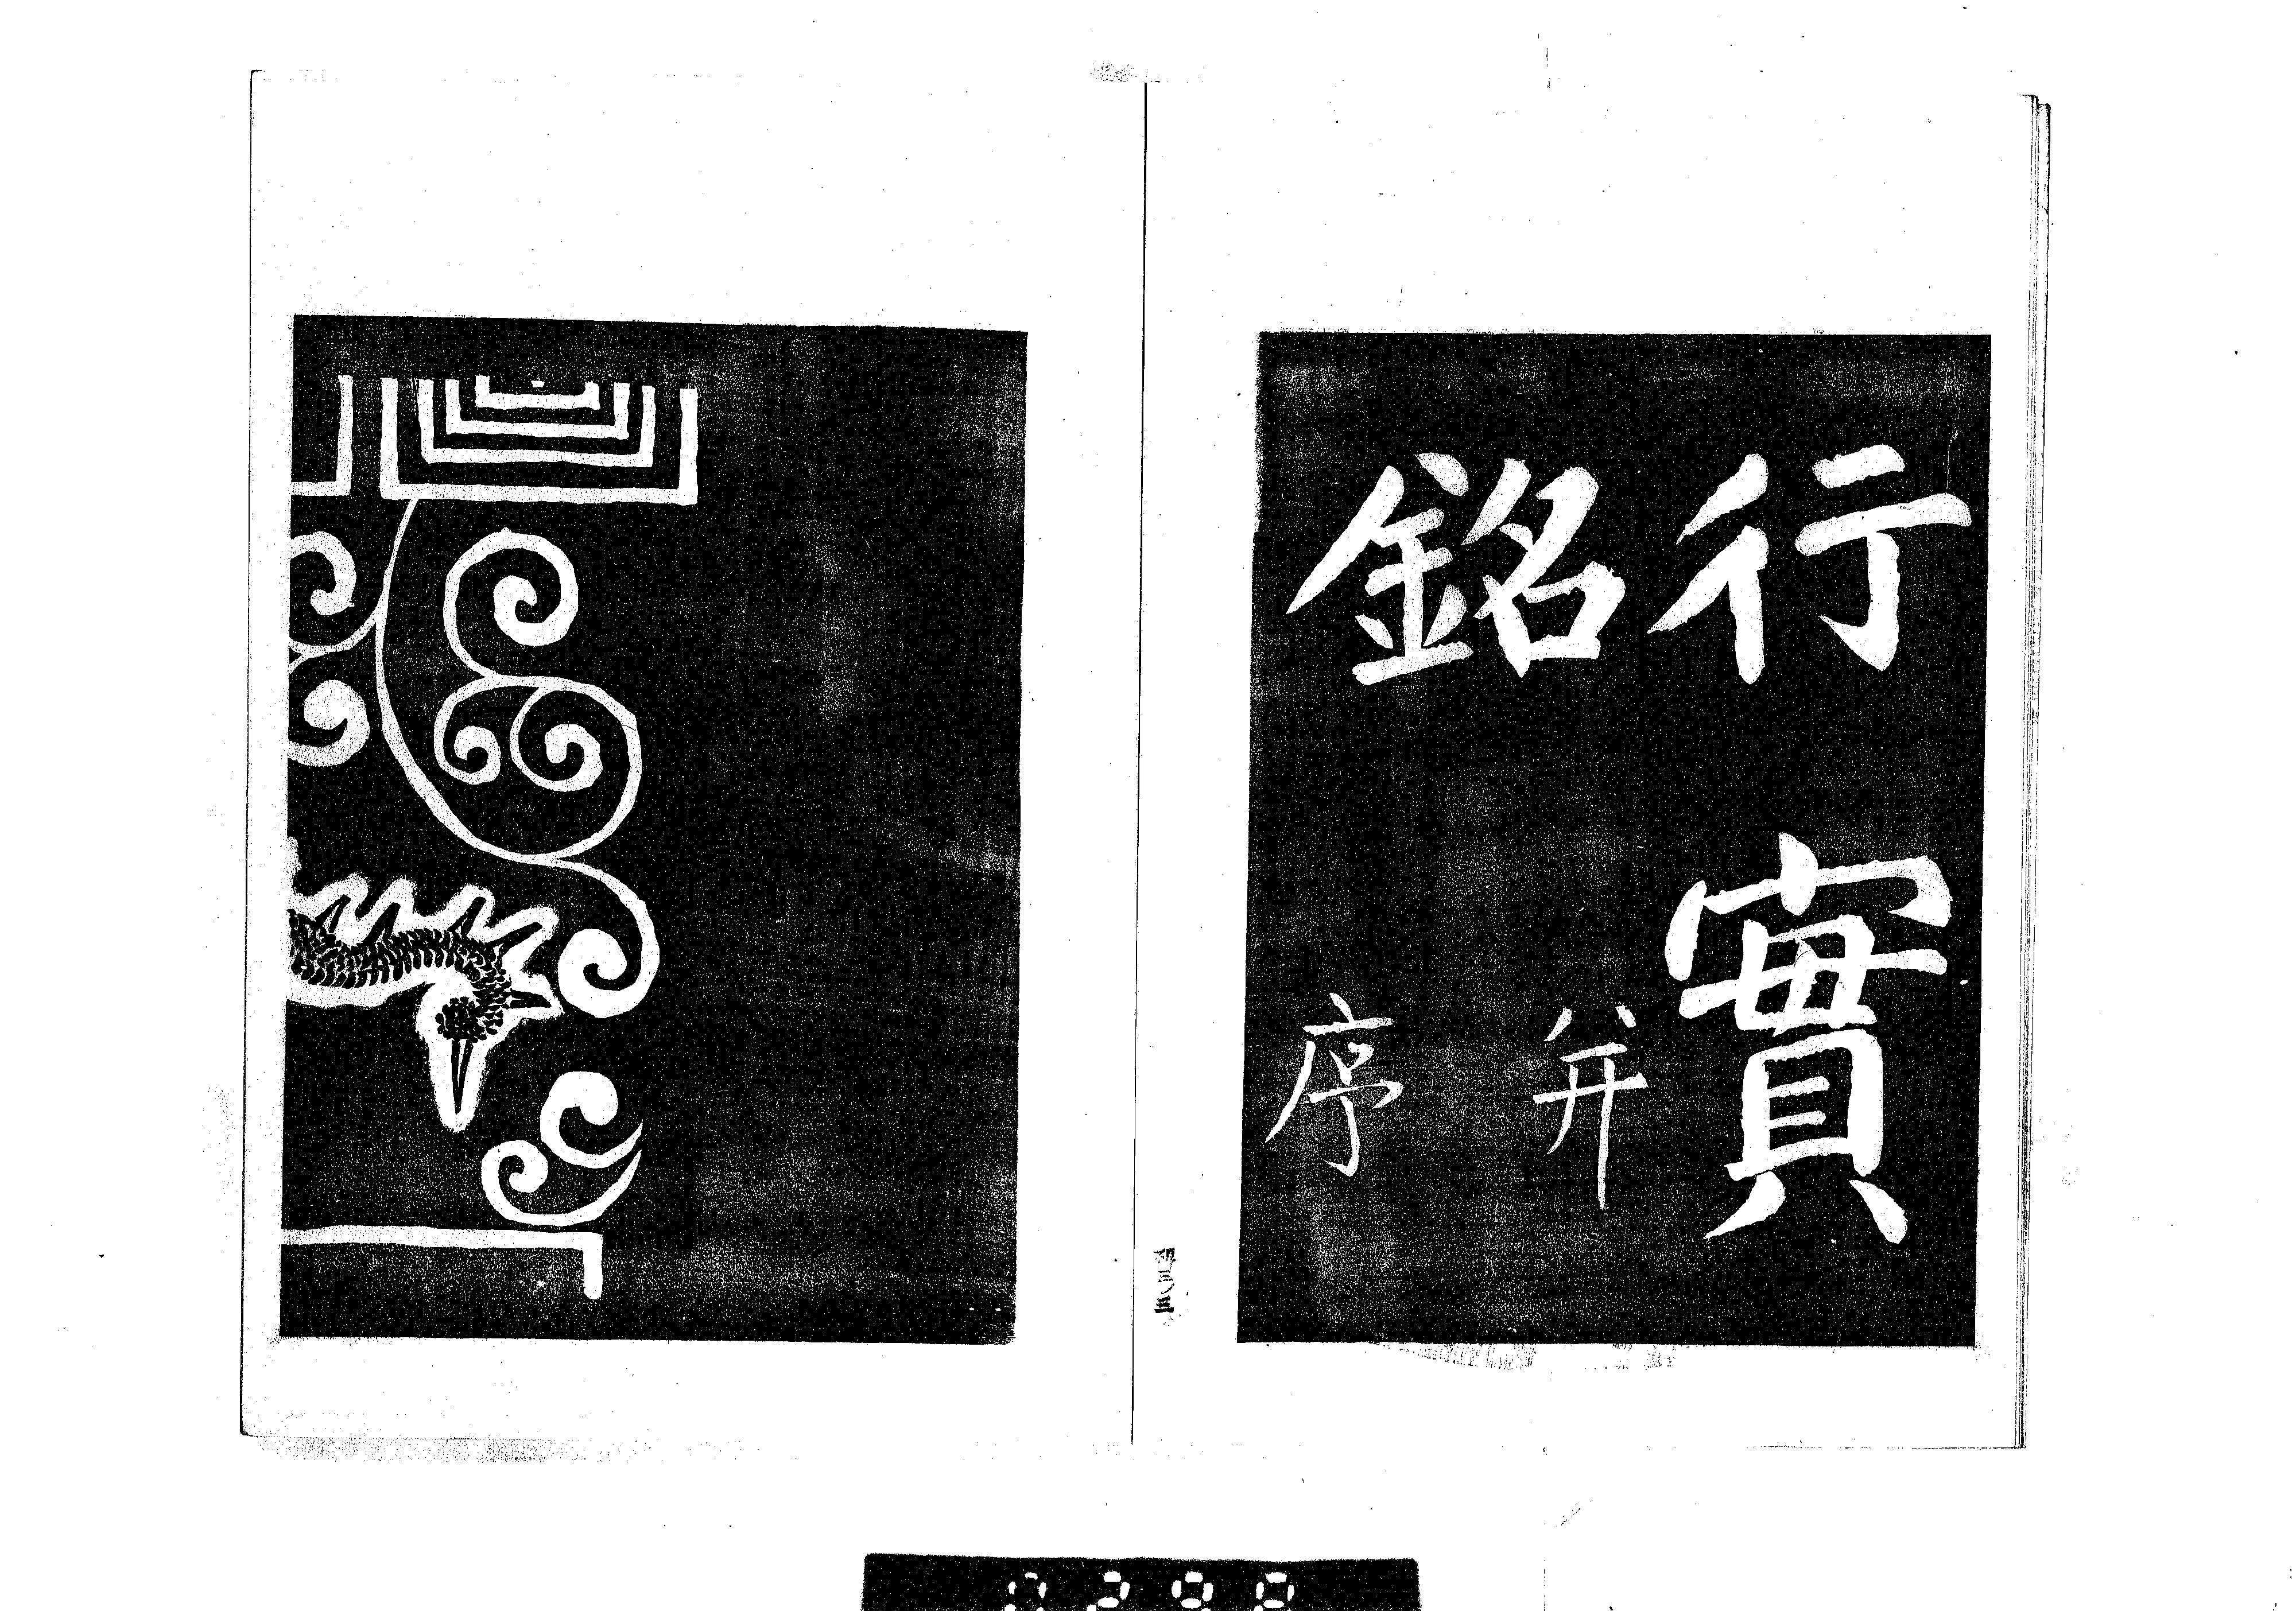 行實
銘并序